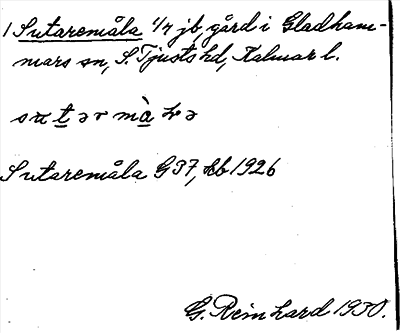 1 Sutaremåla 1/4 jb, gård i Gladham-
mars sn, S. Tjusts hd, Kalmar l.
Sutaremåla G 37, kb 1926
G. Reinhard 1930.